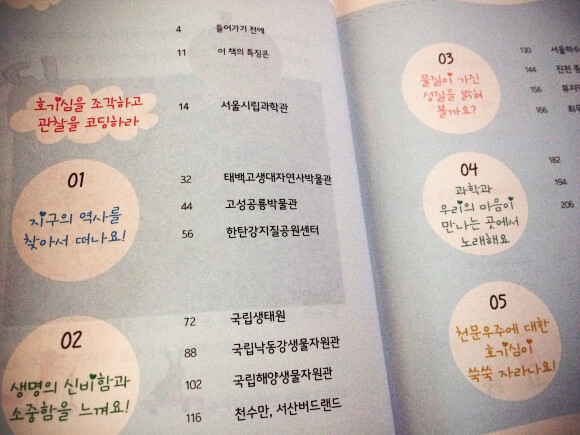 4 들어가기 전에
11 이 책의 특징은
호기심을 조각하고
관찰을 코딩하라
14 서울시립과학관
01
지구의 역사를
찾아서 떠나요!
32 태백고생대자연사박물관
44 고성공룡박물관
56 한탄강지질공원센터
02
생명의 신비함과
소중함을 느껴요!
72 국립생태원
88 국립낙동강생물자원관
102 국립해양생물자원관
116 천수만, 서산버드랜드
03
물질이 가진
성질을 밝혀
볼까요?
130 서울하수
144 진천
156
166
04
과학과
우리의 마음이
만나는 곳에서
노래해요
182
194
206
05
천문우주에 대한
호기심이
쑥쑥 자라나요!